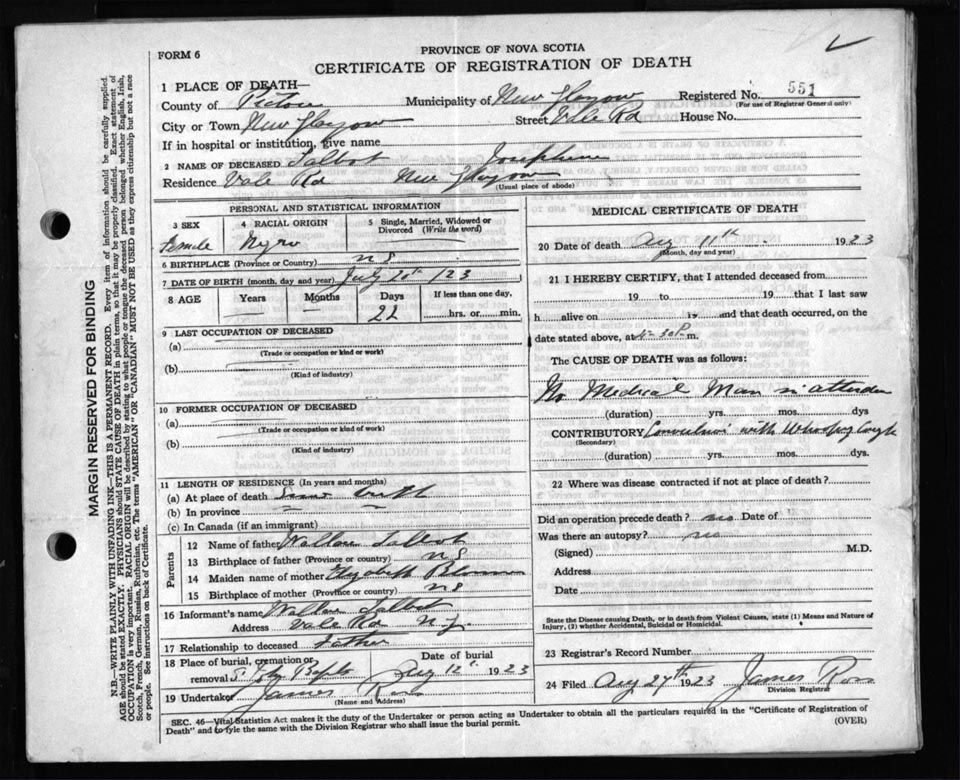 FORM 6
PROVINCE OF NOVA SCOTIA
CERTIFICATE OF REGISTRATION OF DEATH
1 PLACE OF DEATH—
County of Pictou Municipality of New Glasgow Registered No. 551
(For use of Registrar General only)
City or Town New Glasgow Street Vale Rd House No.
If in hospital or institution, give name
2 NAME OF DECEASED Talbot Josephine
Residence Vale Rd New Glasgow
(Usual place of abode)
PERSONAL AND STATISTICAL INFORMATION
3 SEX 4 RACIAL ORIGIN 5 Single, Married, Widowed or Divorced (Write the word)
Female Negro
6 BIRTHPLACE (Province or Country) N S
7 DATE OF BIRTH (month, day and year) July 20th /23
8 AGE Years Months Days If less than one day,
— — 22 hrs. or min.
9 LAST OCCUPATION OF DECEASED
(a)
(Trade or occupation or kind or work)
(b)
(Kind of industry)
10 FORMER OCCUPATION OF DECEASED
(a)
(Trade or occupation or kind of work)
(b)
(Kind of industry)
11 LENGTH OF RESIDENCE (In years and months)
(a) At place of death Since birth
(b) In province
(c) In Canada (if an immigrant)
Parents
12 Name of father Wallace Talbot
13 Birthplace of father (Province or country) N S
14 Maiden name of mother Elizabeth
15 Birthplace of mother (Province or country) N S
16 Informant's name Wallace Talbot
Address Vale Rd N.G.
17 Relationship to deceased Father
18 Place of burial, cremation or removal Date of burial
Aug 12th 1923
19 Undertaker James Ross
(Name and Address)
MEDICAL CERTIFICATE OF DEATH
20 Date of death Aug 11th 1923
(Month, day and year)
21 I HEREBY CERTIFY, that I attended deceased from
19 to 19 that I last saw
h alive on 19 and that death occurred, on
date stated above, at 4-30 P. m.
The CAUSE OF DEATH was as follows:
No Medical Man in attendance
(duration) yrs. mos. dys
CONTRIBUTORY Convulsions with Whooping Cough
(Secondary)
(duration) yrs. mos. dys.
22 Where was disease contracted if not at place of death?
Did an operation precede death? no Date of
Was there an autopsy? no
(Signed) M.D.
Address
Date
State the Disease causing Death, or in death from Violent Causes, state (1) Means and Nature of Injury, (2) whether Accidental, Suicidal or Homicidal.
23 Registrar's Record Number
24 Filed Aug 27th 1923 James Ross
Division Registrar
SEC. 46—Vital Statistics Act makes it the duty of the Undertaker or person acting as Undertaker to obtain all the particulars required in the "Certificate of Registration of
Death" and to file the same with the Division Registrar who shall issue the burial permit. (OVER)
MARGIN RESERVED FOR BINDING
N.B.—WRITE PLAINLY WITH UNFADING INK—THIS IS A PERMANENT RECORD. Every item of information should be carefully supplied.
AGE should be stated EXACTLY. PHYSICIANS should STATE CAUSE OF DEATH in plain terms, so that it may be properly classified. Exact statement of
OCCUPATION is very important. RACIAL ORIGIN will be described by stating to what people or tongue the deceased person belonged whether English, Irish,
Scotch, French, German, Russian, Ruthenian, etc. The terms "AMERICAN" OR "CANADIAN" MUST NOT BE USED as they express citizenship but not a race
or people. See instructions on back of Certificate.